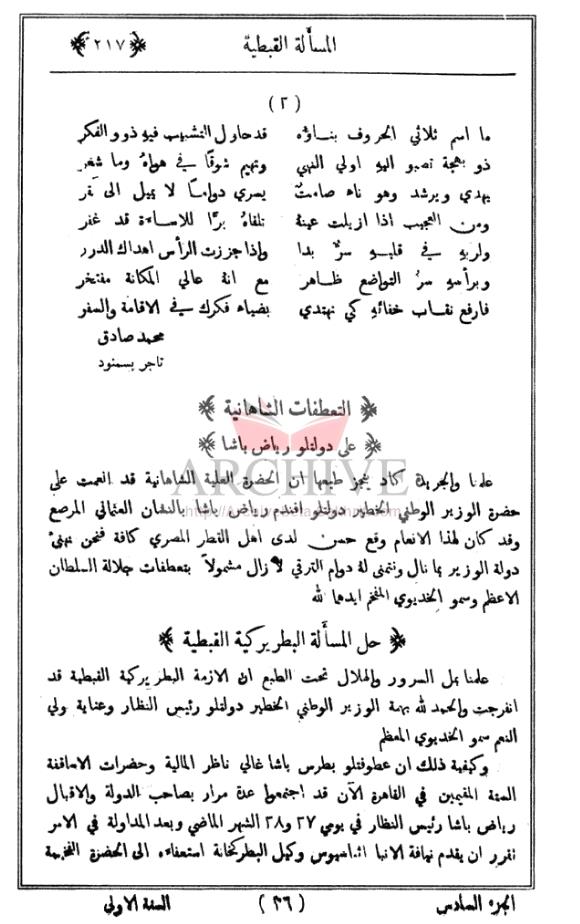 المسألة القبطية ﴿٢١٧﴾
(٢)
ما اسم ثلاثي الحروف بناؤه قد حاول التشبيب فيه ذوو الفكر
ذو بهجة تصبو اليه اولي النهى وتهيم شوقًا في هواهُ وما شعر
يهدي ويرشد وهو ناه صامت يسري دوامًا لا يميل الى
ومن العجيب اذا ازيلت عينهُ تلقاهُ برًّا للاساءة قد غفر
ولربهِ في قلبهِ سرٌّ بدا واذا جززت الرأس اهداك الدرر
وبرأسهِ سرُّ التواضع ظاهر مع انهُ عالي المكانة مفتخر
فارفع نقاب خفائهِ كي نهتدي بضياء فكرك في الاقامة والسفر
محمد صادق
تاجر بسمنود
﴿ التعطفات الشاهانية ﴾
﴿ على دولتلو رياض باشا ﴾
ARCHIVE
علمنا والجريدة كاد ينجز طبعها ان الحضرة العلية الشاهانية قد انعمت على
حضرة الوزير الوطني الخطير دولتلو افندم رياض باشا بالنشان العثماني المرصع
وقد كان لهذا الانعام وقع حسن لدى اهل القطر المصري كافة فنحن نهنئ
دولة الوزير بما نال ونتمنى له دوام الترقي لا زال مشمولاً بتعطفات جلالة السلطان
الاعظم وسمو الخديوي المفخم ايدهما الله
﴿ حل المسألة البطريركية القبطية ﴾
علمنا بمل السرور والهلال تحت الطبع ان الازمة البطريركية القبطية قد
انفرجت والحمد لله بهمة الوزير الوطني الخطير دولتلو رئيس النظار وعناية ولي
النعم سمو الخديوي المعظم
وكيفية ذلك ان عطوفتلو بطرس باشا غالي ناظر المالية وحضرات الاساقفة
الستة المقيمين في القاهرة الآن قد اجتمعوا عدة مرار بصاحب الدولة والاقبال
رياض باشا رئيس النظار في يومي ٢٧ و٢٨ الشهر الماضي وبعد المداولة في الامر
تقرر ان يقدم نيافة الانبا اثناسيوس وكيل البطركخانة استعفاءه الى الحضرة الفخيمة
الجزء السادس (٢٦) السنة الاولى